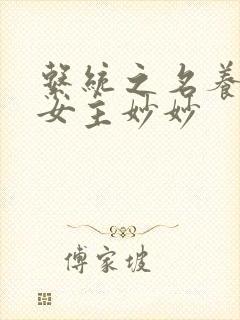 繫統之名養
女主妙妙
傅家坡